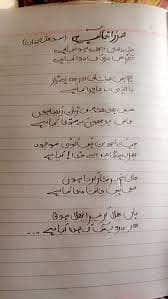 مرزا غالب (اسد اللہ خان)
دل ناداں تجھے ہوا کیا ہے
آخر اس درد کی دوا کیا ہے
ہم ہیں مشتاق اور وہ بیزار
یا الٰہی یہ ماجرا کیا ہے
میں بھی منہ میں زبان رکھتا ہوں
کاش پوچھو کہ مدعا کیا ہے
جب کہ تجھ بن نہیں کوئی موجود
پھر یہ ہنگامہ اے خدا کیا ہے
جان تم پر نثار کرتا ہوں
کیا ہے
ہاں بھلا کر ترا بھلا ہوگا
اور درویش کی صدا کیا ہے ...